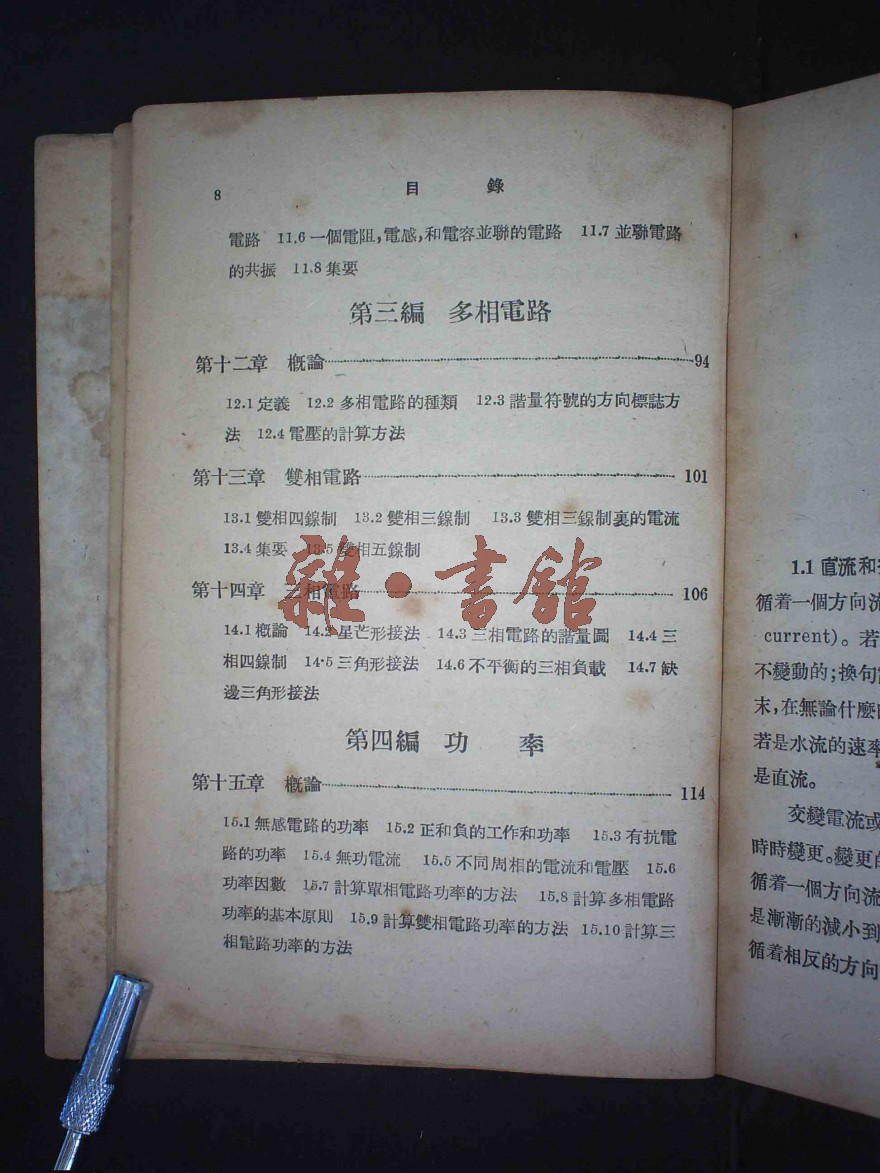 8
目 錄
電路 11.6 一個電阻,電感,和電容並聯的電路 11.7 並聯電路
的共振 11.8 集要
第三編 多相電路
第十二章 概論 94
12.1 定義 12.2 多相電路的種類 12.3 諧量符號的方向標誌方
法 12.4 電壓的計算方法
第十三章 雙相電路 101
13.1 雙相四線制 13.2 雙相三線制 13.3 雙相三線制裏的電流
13.4 集要 13.5 雙相五線制
雜·書館
第十四章 三相電路 106
14.1 概論 14.2 星芒形接法 14.3 三相電路的諧量圖 14.4 三
相四線制 14·5 三角形接法 14.6 不平衡的三相負載 14.7 缺
邊三角形接法
第四編 功 率
第十五章 概論 114
15.1 無感電路的功率 15.2 正和負的工作和功率 15.3 有抗電
路的功率 15.4 無功電流 15.5 不同周相的電流和電壓 15.6
功率因數 15.7 計算單相電路功率的方法 15.8 計算多相電路
功率的基本原則 15.9 計算雙相電路功率的方法 15.10 計算三
相電路功率的方法
1.1 直流和
循着一個方向流
current)。若
不變動的;換句
末,在無論什麼
若是水流的速率
是直流。
交變電流或
時時變更。變更的
循着一個方向流
是漸漸的減小到
循着相反的方向